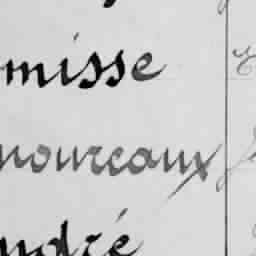 misse
noureaux
ndré